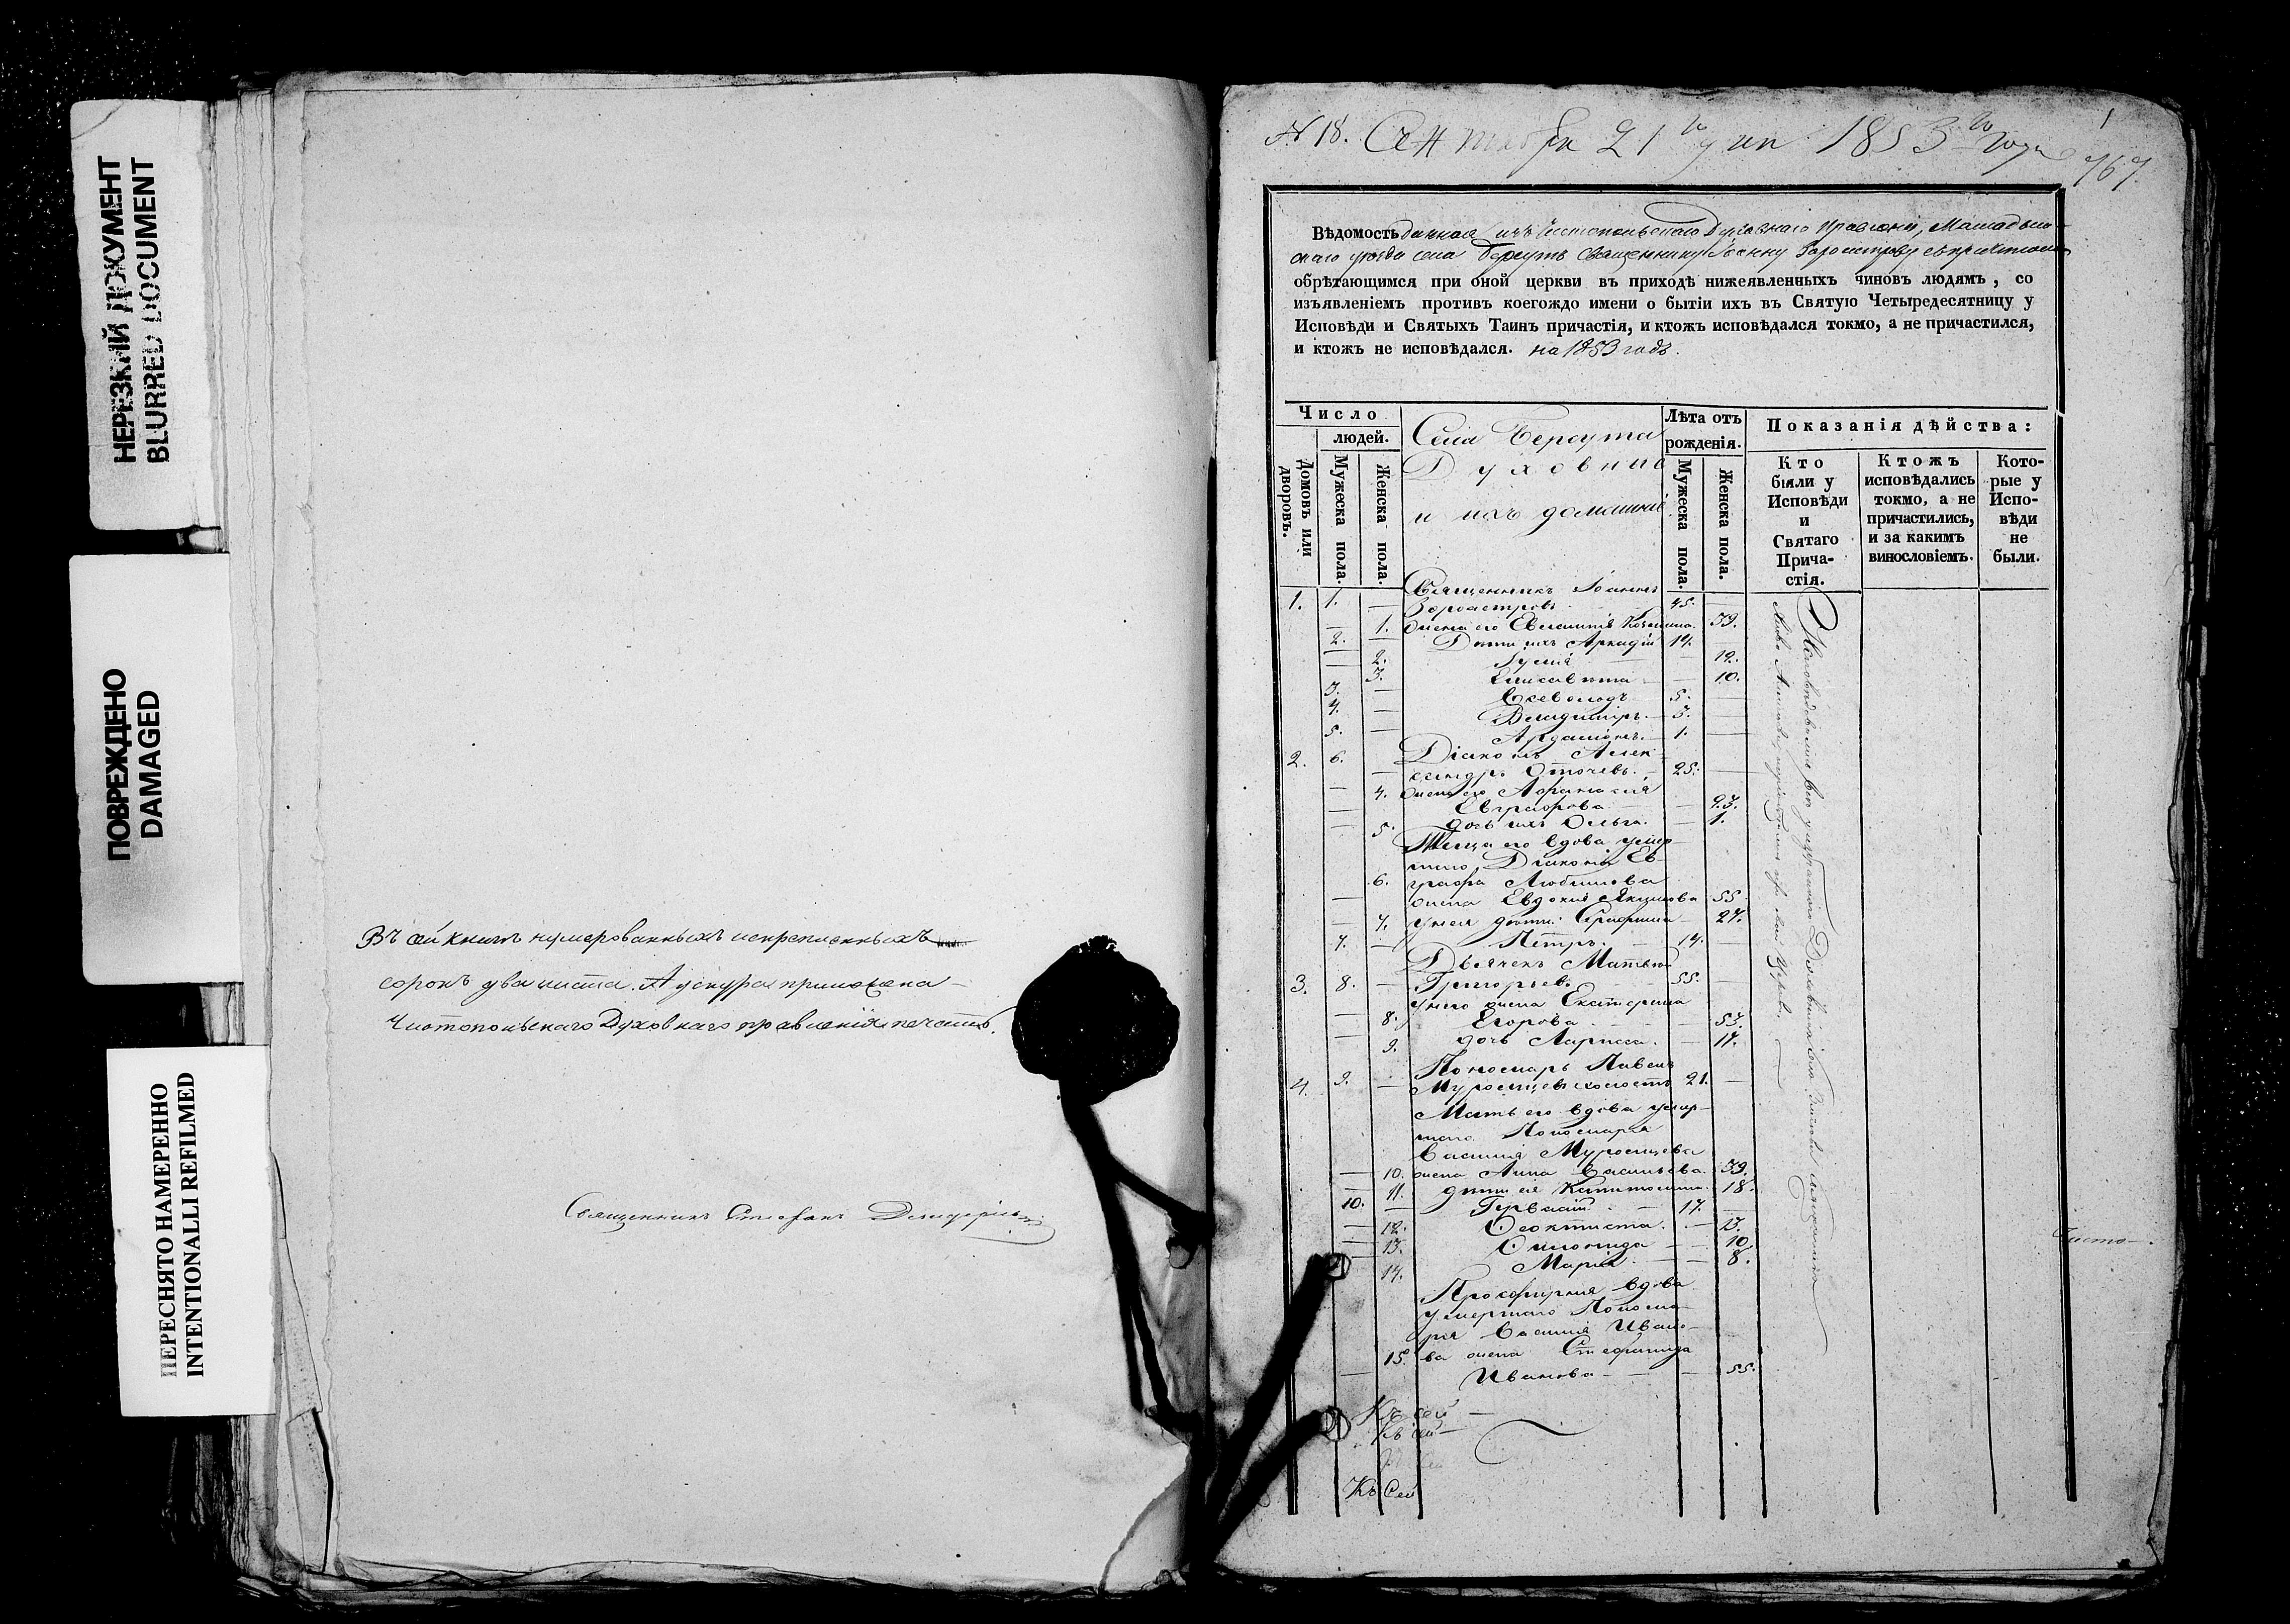 НЕРЕЗКИЙ ДОКУМЕНТ
BLURRED DOCUMENT
ПОВРЕЖДЕНО
DAMAGED
ПЕРЕСНЯТО НАМЕРЕННО
INTENTIONALLI REFILMED
Въ сей книгѣ нумерованныхъ и скрепленныхъ
сорокъ два листа. А у снура приложена
Чистопольскаго Духовнаго правленія печать.
Священникъ Стефанъ
N 18. Сентября 21 го дня 1853 го года
1
767
Вѣдомость данная изъ Чистопольскаго Духовнаго Правленія, Мамадыш-
скаго уѣзда села Берсутъ Священнику Іоанну Зороастрову съ причтомъ
обрѣтающимся при оной церкви въ приходѣ нижеявленныхъ чиновъ людямъ, со
изъявленіемъ противъ коегождо имени о бытіи ихъ въ Святую Четыредесятницу у
Исповѣди и Святыхъ Таинъ причастія, и ктожъ исповѣдался токмо, а не причастился,
и ктожъ не исповѣдался. на 1853 годъ.
Число
людей.
Домовъ или дворовъ.
Мужеска пола.
Женска пола.
Села Берсута
Духовные
и ихъ домашніе
Лѣта отъ рожденія.
Мужеска пола.
Женска пола.
Показанія дѣйства:
Кто были у Исповѣди и Святаго Прича-стія.
Ктожъ исповѣдались токмо, а не причастились, и за какимъ винословіемъ.
Кото-рые у Испо-вѣди не были.
Священникъ Іоаннъ
1. 1. — Зороастровъ 45. —
— 1. жена его Евлампія Козмина. 39.
2. — Дѣти ихъ Аркадій 14.
— 2. Лулія — 12.
— 3. Елисавета — 10.
3. — Всеволодъ 5. —
4. — Владиміръ. — 3. —
5. — Ардаліонъ. — 1. —
2. 6. Діаконъ Алек-
— сандръ Оточевъ. — 25. —
— 4. жена его Афанасія
— Евграфова — — 23.
— 5. дочь ихъ Ольга. — 1.
Теща его вдова умер-
шаго Діакона Ев-
6. графа Любимова
— жена Евдокія Акимова 55
— 7. у нея дѣти: Серафима — 27.
7. — Петръ. — 14. —
Дьячекъ Матвей
3. 8. — Григорьевъ 55. —
у него жена Екатерина
— 8. Егорова — — 53.
— 9. дочь Лариса. — 17.
Пономарь Павелъ
4. 9. — Муромцевъ холостъ 21. —
Мать его вдова умер-
шаго Пономаря
Василія Муромцева
— 10. жена Анна Васильева. 39.
— 11. дѣти ея Капитолина. 18.
10. — Гервасій — 17. —
— 12. Феоктиста. — 13.
— 13. Олимпіада — — 10.
— 14. Марія. — — 8.
Просфирня вдова
умершаго Понома-
ря Василія Ивано-
15. ва жена Стефанида
— Иванова — — 55.
Къ сей —
Къ сей —
Къ Сей